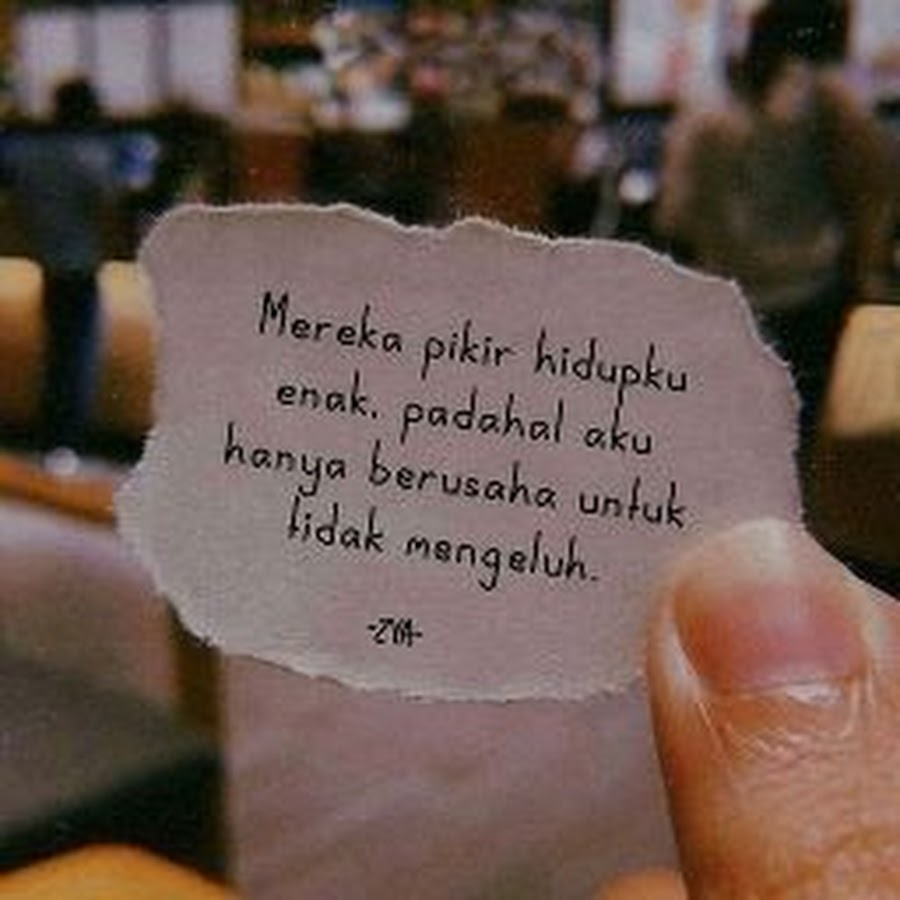 Mereka pikir hidupku
enak. padahal aku
hanya berusaha untuk
tidak mengeluh.
-ZYA-